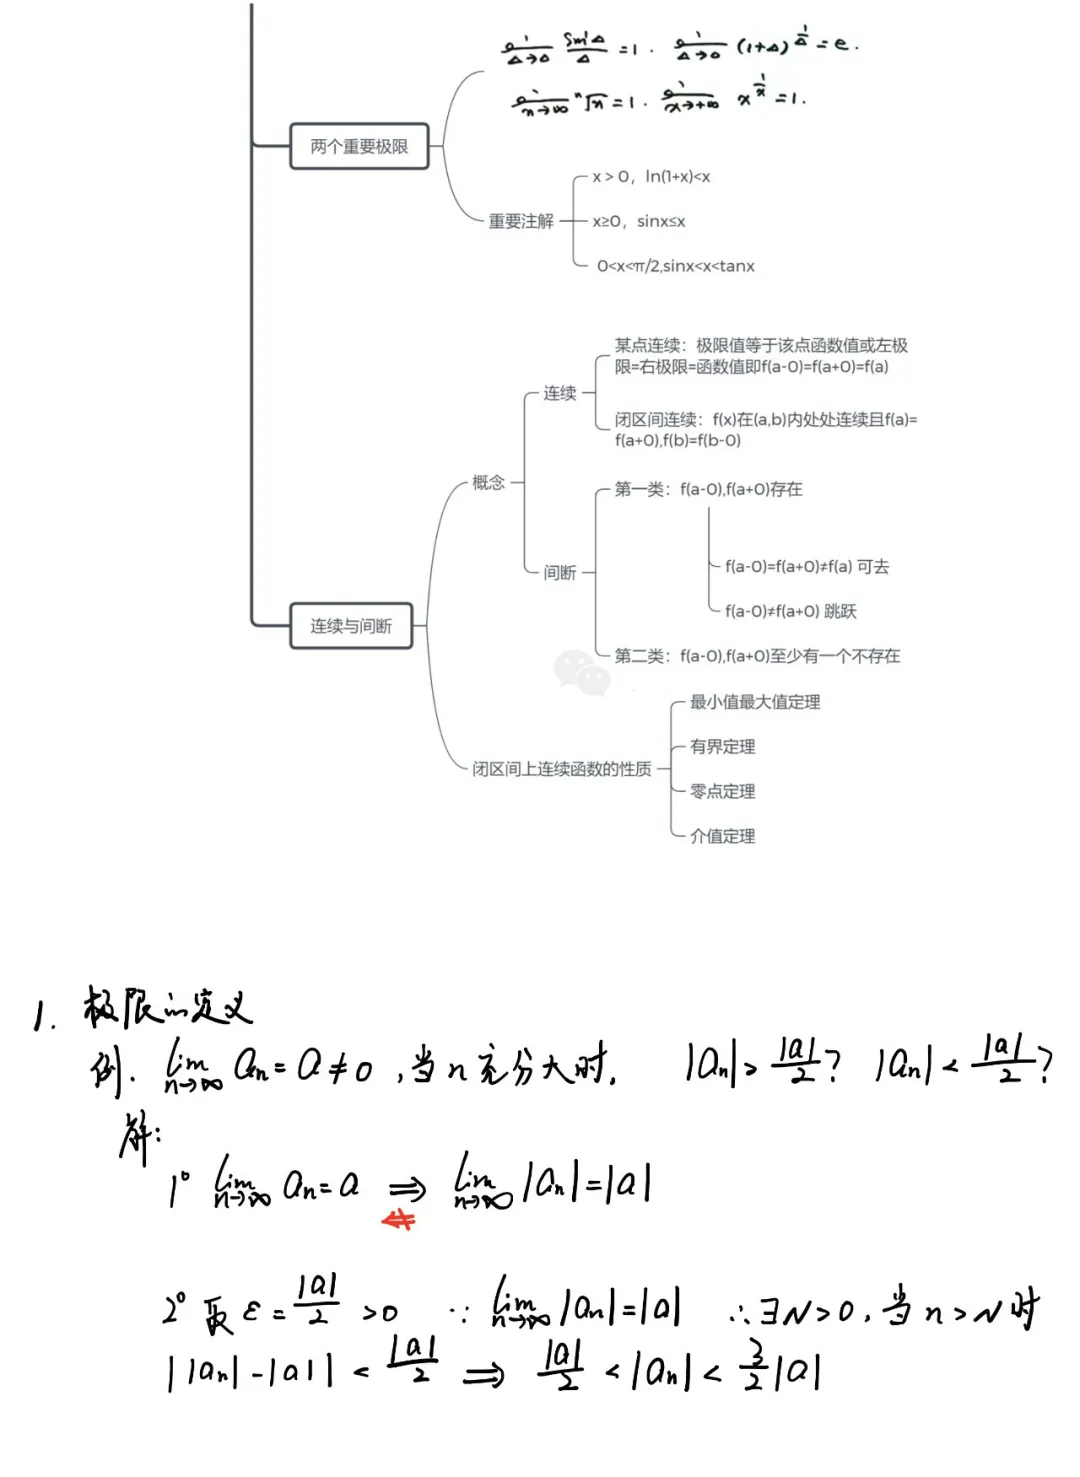 lim Δ→0 sinΔ/Δ = 1. lim Δ→0 (1+Δ)^{1/Δ} = e.
lim n→∞ ⁿ√n = 1. lim x→+∞ x^{1/x} = 1.
两个重要极限
重要注解
x > 0，ln(1+x)<x
x≥0，sinx≤x
0<x<π/2,sinx<x<tanx
连续与间断
概念
连续
某点连续：极限值等于该点函数值或左极
限=右极限=函数值即f(a-0)=f(a+0)=f(a)
闭区间连续：f(x)在(a,b)内处处连续且f(a)=
f(a+0),f(b)=f(b-0)
间断
第一类：f(a-0),f(a+0)存在
f(a-0)=f(a+0)≠f(a) 可去
f(a-0)≠f(a+0) 跳跃
第二类：f(a-0),f(a+0)至少有一个不存在
闭区间上连续函数的性质
最小值最大值定理
有界定理
零点定理
介值定理
1. 极限的定义
例. lim n→∞ aₙ = a ≠ 0 , 当 n 充分大时, |aₙ| > |a|/2 ? |aₙ| < |a|/2 ?
解:
1° lim n→∞ aₙ = a ⇒ lim n→∞ |aₙ| = |a|
⇍
2° 取 ε = |a|/2 > 0 ∵ lim n→∞ |aₙ| = |a| ∴ ∃N>0, 当 n>N 时
||aₙ| - |a|| < |a|/2 ⇒ |a|/2 < |aₙ| < 3/2 |a|